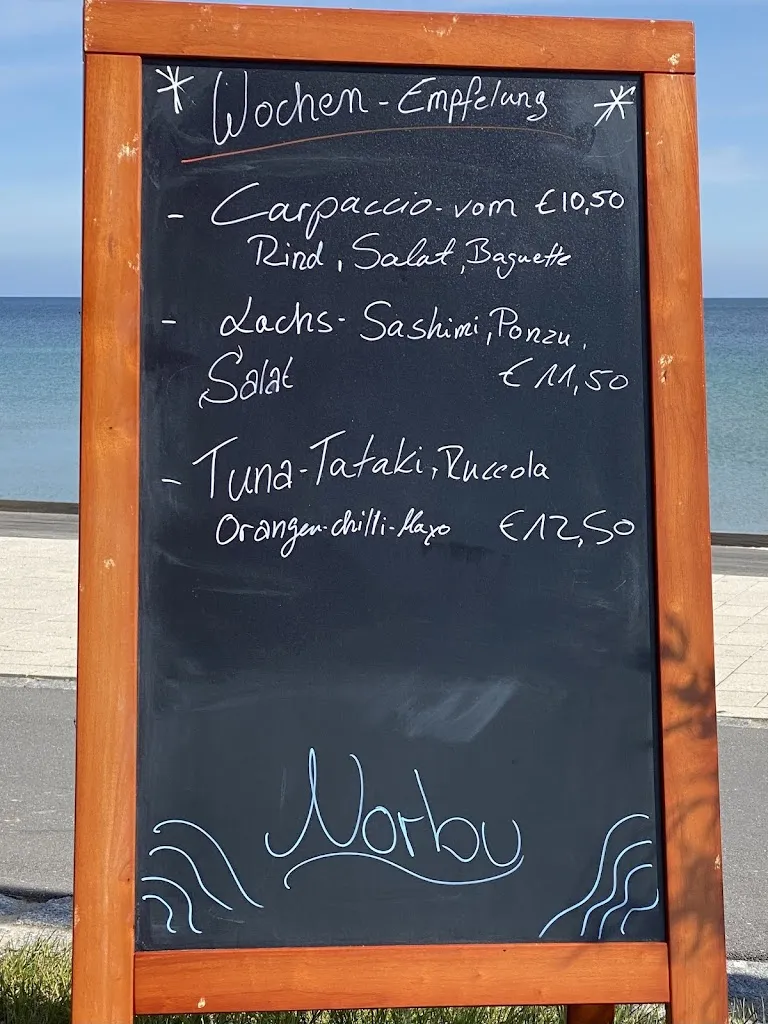 * Wochen - Empfelung *
- Carpaccio - vom €10,50
Rind, Salat, Baguette
- Lachs - Sashimi, Ponzu,
Salat €11,50
- Tuna - Tataki, Ruccola
Orangen-chilli-Mayo €12,50
Norbu